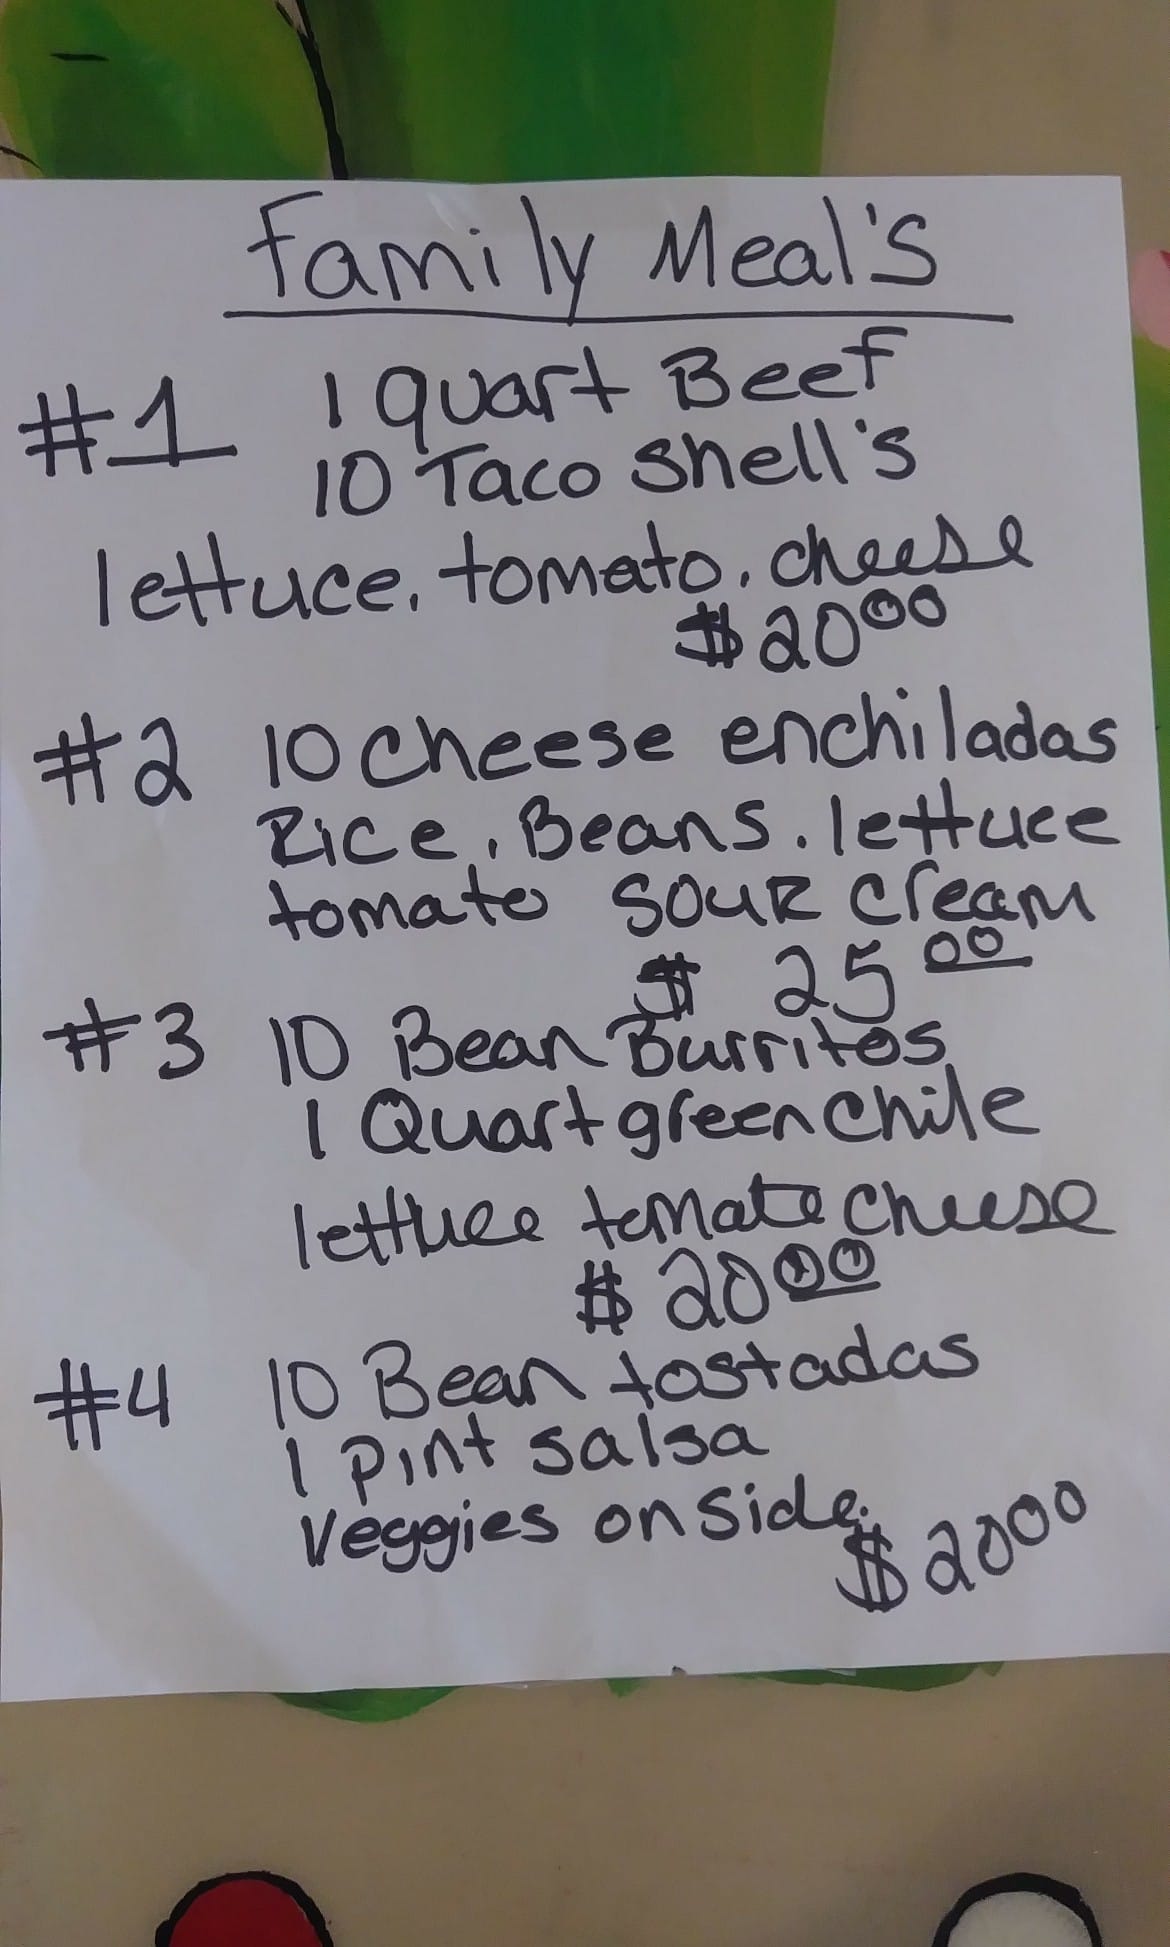 Family Meal's
#1 1 quart Beef
10 Taco Shell's
lettuce, tomato, cheese
$20.00
#2 10 cheese enchiladas
Rice, Beans, lettuce
tomato sour cream
$ 25.00
#3 10 Bean Burritos
1 Quart green chile
lettuce tomato cheese
$ 20.00
#4 10 Bean tostadas
1 pint salsa
Veggies on side.
$20.00